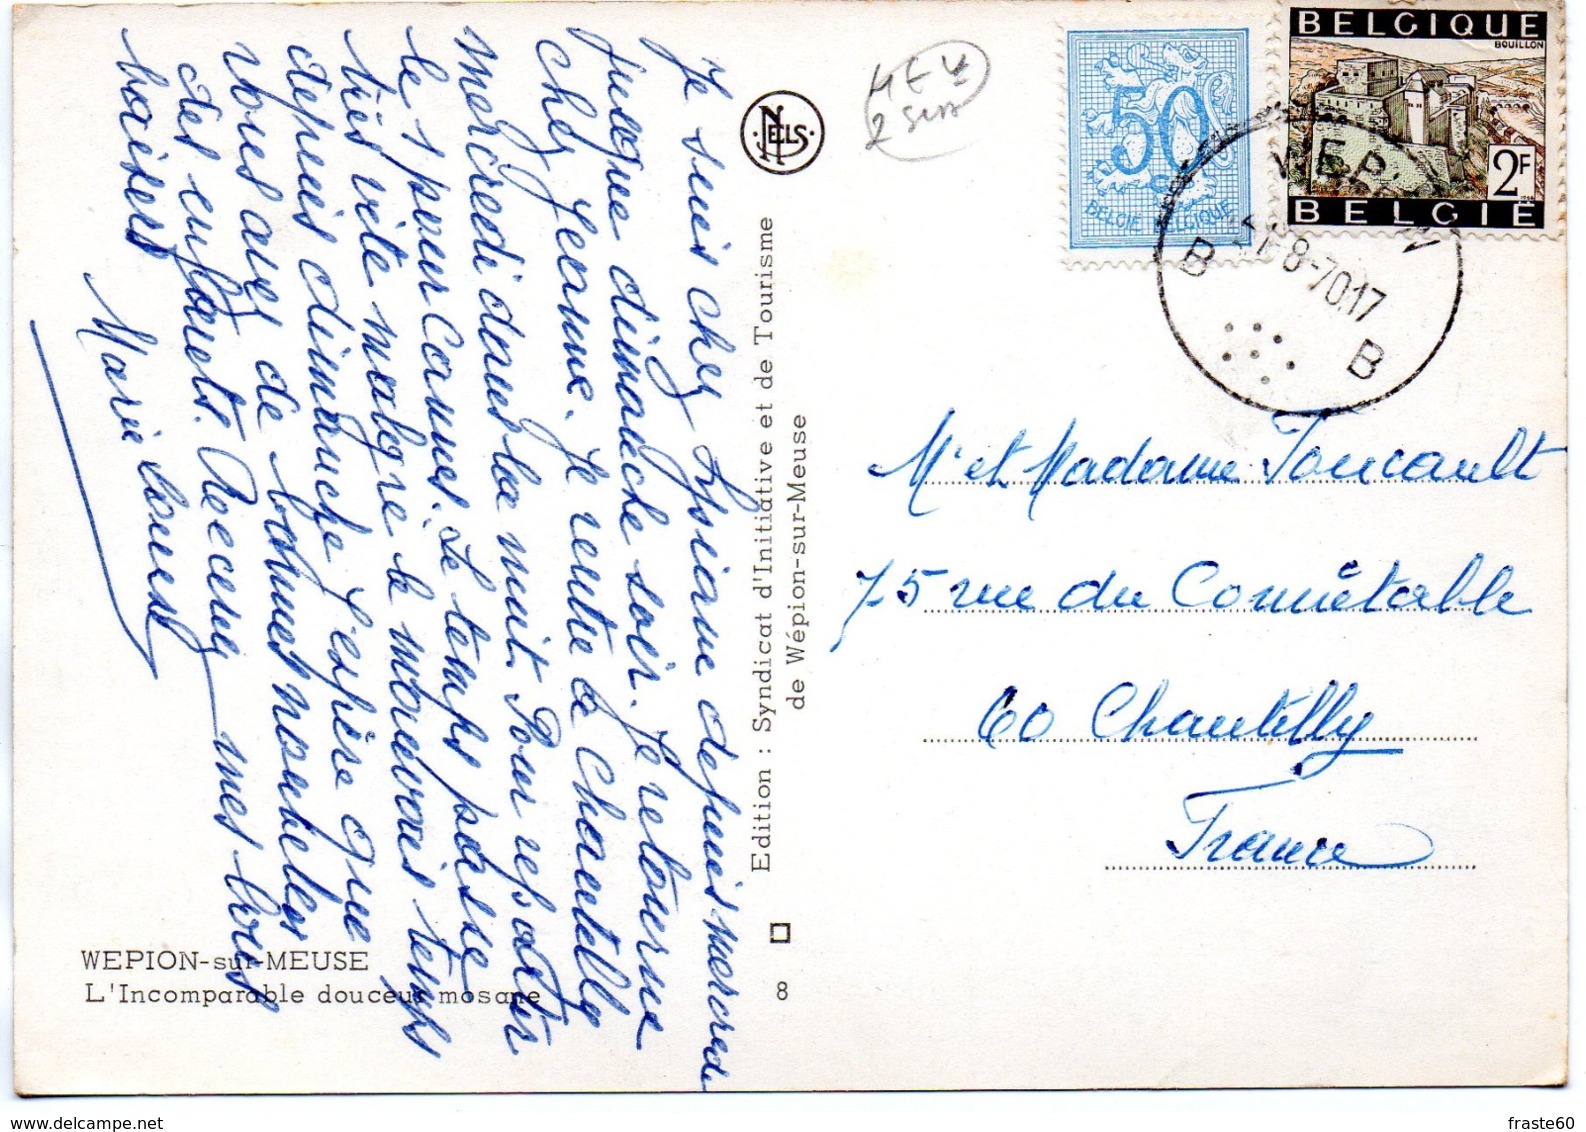 Je suis chez Lysiane depuis mercredi
jusque dimanche soir. Je retourne
chez Jeanne. Je rentre à Chantilly
mercredi dans la nuit. Pour repartir
le 1 pour Cannes. Le temps passe
très vite malgré le mauvais temps
depuis dimanche. J'espère que
vous avez de bonnes nouvelles
des enfants. Recevez mes bons
baisers
Marie Louise
WEPION-sur-MEUSE
L'Incomparable douceur mosane
Edition : Syndicat d'Initiative et de Tourisme
de Wépion-sur-Meuse
8
NELS
50
BELGIË BELGIQUE
BELGIQUE
BOUILLON
2F
BELGIË
WEP
8-70.17
B B
Mr et Madame Foucault
75 rue du Connétable
60 Chantilly
France
www.delcampe.net
fraste60